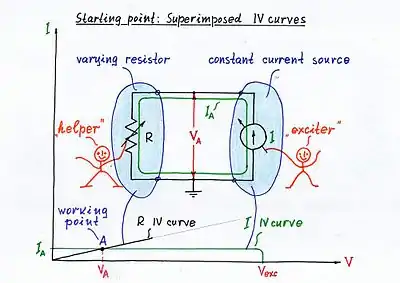 Starting point: Superimposed IV curves
I
varying resistor
constant current source
I_A
"helper"
R
V_A
I
"exciter"
working
point
R IV curve
I IV curve
I_A
A
V_A
V_exc
V